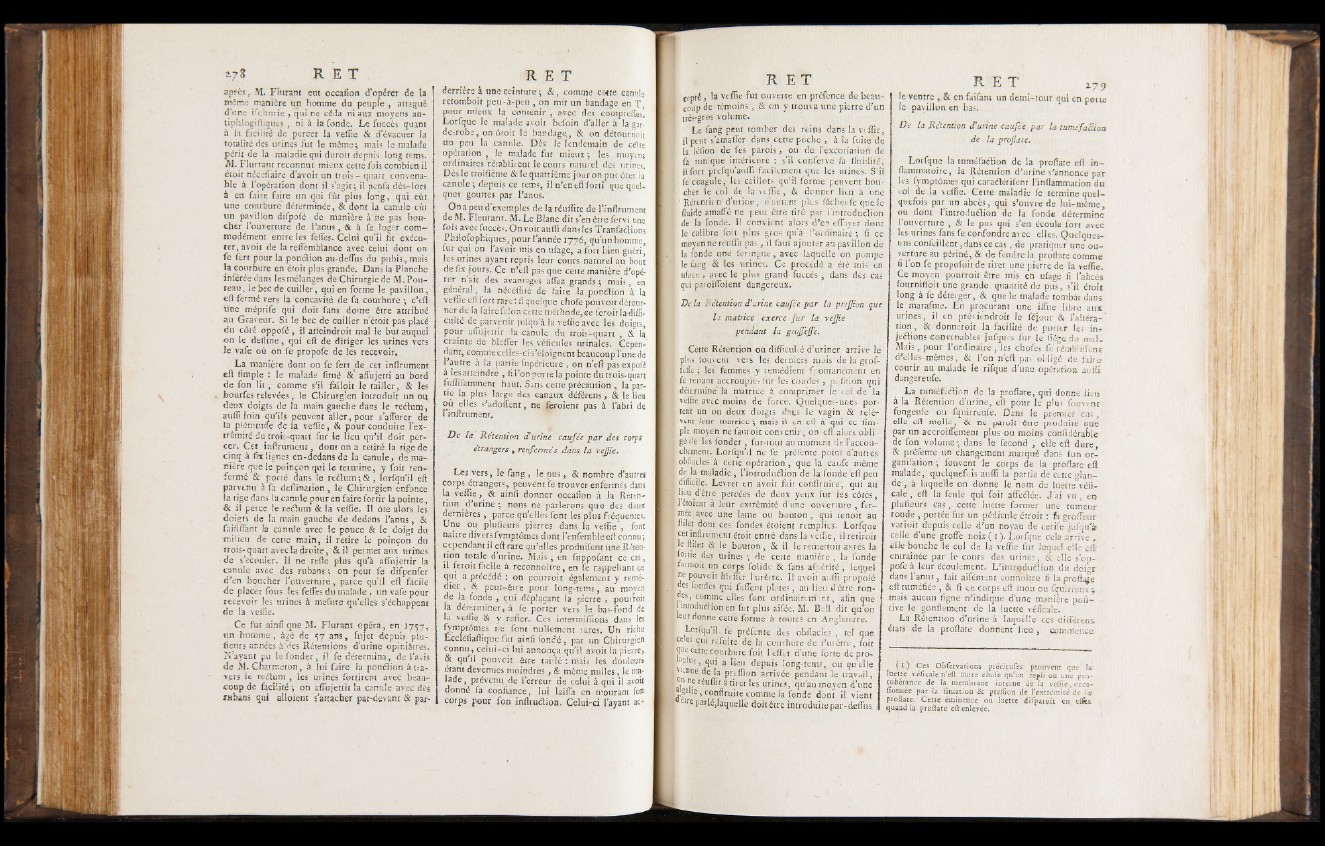 278 R E T
après, M. Flurant eut occasion d'opérer de la
même manière un homme du peuple, attaqué
d'une ischurie, qui ne céda ni aux moyens an-
tiphlogistiques, ni à la sonde. Le succès quant
à la facilité de percer la vessie & d'évacuer la
totalité des urines fut le même; mais le malade
périt de la maladie qui duroit depuis long tems.
M. Flurrant reconnut mieux cette fois combien il
étoit nécessaire d'avoir un trois-quart convena-
ble à l'opération dont il s'agit; il pensa dès-lors
à en faire faire un qui fût plus long, qui eût
une courbure déterminée, & dont la canule eût
un pavillon disposé de manière à ne pas bou-
cher l'ouverture de l'anus, & à se loger com-
modément entre les fesses. Celui qu'il fit exécu-
ter, avoit de la ressemblance avec celui dont on
se sert pour la ponction au-dessus du pubis, mais
la courbure en étoit plus grande. Dans la Planche
insérée dans les mélanges de Chirurgie de M. Pou-
teau, le bec de cuiller, qui en forme le pavillon,
est fermé vers la concavité de sa courbure; c'est
une méprise qui doit sans doute être attribué
au Graveur. Si le bec de cuiller n'étoit pas placé
du côté opposé, il atteindroit mal le but auquel
on le destine, qui est de diriger les urines vers
le vase où on se propose de les recevoir.
La manière dont on se sert de cet instrument
est simple : le malade situé & assujetti au bord
de son lit, comme s'il falloit le tailler, & les
bourses relevées, le Chirurgien introduit un ou
deux doigts de la main gauche dans le rectum,
aussi loin qu'ils peuvent aller, pour s'assurer de
la plénitude de la vessie, & pour conduire l'ex-
trémité du trois-quart sur le lieu qu'il doit per-
cer. Cet instrument, dont on a retiré la tige de
cinq à six lignes en-dedans de la canule, de ma-
nière que le poinçon qui le termine, y soit ren-
fermé & porté dans le rectum; & , lorsqu'il est
parvenu à sa destination, le Chirurgien enfonce
la tige dans la canule pour en faire sortir la pointe,
& il perce le rectum & la vessie. Il ôte alors les
doigts de la main gauche de dedans l'anus, &
saisissant la canule avec le pouce & le doigt du
milieu de cette main, il retire le poinçon du
trois-quart avec la droite, & il permet aux urines
de s'écouler. Il ne reste plus qu'à assujettir la
canule avec des rubans; on peut se dispenser
d'en boucher l'ouverture, parce qu'il est facile
de placer sous les fesses du malade, un vase pour
recevoir les urines à mesure qu'elles s'échappent
de la vessie.
Ce fut ainsi que M. Flurant opéra, en 1757,
un homme, âgé de 57 ans, sujet depuis plu-
sieurs années à des Rétentions d'urine opiniâtres.
N'ayant pu le sonder, il se détermina, de l'avis
de M. Charmeton, à lui faire la ponction à tra-
vers le rectum, les urines sortirent avec beau-
coup de facilité; on assujettit la canule avec des
rubans qui alloient s'attacher par-devant & par-
R E T
derrière à une ceinture; &, comme cette canule
retomboit peu-à-peu, on mit un bandage en T,
pour mieux la contenir, avec des compresses.
Lorsque le malade avoit besoin d'aller à la gar-
de-robe, on ôtoit le bandage, & on détournoit
un peu la canule. Dès le lendemain de cette
opération, le malade fut mieux; les moyens
ordinaires rétablirent le cours naturel des urines.
Dès le troisième & le quatrième jour on put ôter la
canule; depuis ce tems, il n'en est sorti que quel-
ques gouttes par l'anus.
On a peu d'exemples de la réussite de l'instrument
de M. Fleurant. M. Le Blanc dit s'en être servi une
fois avec succès. On voit aussi dans les Transactions
Philosophiques, pour l'année 1776, qu'un homme,
sur qui on l'avoit mis en usage, a fort bien guéri,
les urines ayant repris leur cours naturel au bout
de six jours. Ce n'est pas que cette manière d'opé-
rer n'ait des avantages assez grands; mais, en
général, la nécessité de faire la ponction à la
vessie est fort rare : si quelque chose pouvoit détour-
ner de la faire selon cette méthode, ce seroit la diffi-
culté de parvenir jusqu'à la vessie avec les doigts,
pour assujettir la canule du trois-quart, & la
crainte de blesser les vésicules urinales. Cepen-
dant, comme celles-ci s'éloignent beaucoup l'une de
l'autre à la partie supérieure, on n'est pas exposé
à les atteindre, si l'on porte la pointe du trois-quart
suffisamment haut. Sans cette précaution, la par-
tie la plus large des canaux déférens, & le lieu
où elles s'adossent, ne seroient pas à l'abri de
l'instrument.
De la Rétention d'urine causée par des corps
étrangers, renfermés dans la vessie.
Les vers, le sang, le pus, & nombre d'autres
corps étrangers, peuvent se trouver enfermés dans
la vessie, & ainsi donner occasion à la Reten-
tion d'urine; nous ne parlerons que des deux
dernières, parce qu'elles sont les plus fréquentes.
Une ou plusieurs pierres dans la vessie, font
naître divers symptômes dont l'ensemble est connu;
cependant il est rare qu'elles produisent une Réten-
tion totale d'urine. Mais, en supposant ce cas,
il seroit facile à reconnoître, en se rappellant ce
qui a précédé : on pourroit également y remé-
dier, & peut-être pour long-tems, au moyen
de la sonde, qui déplaçant la pierre, pourroit
la déterminer, à se porter vers le bas-fond de
la vessie & y rester. Ces intermissions dans les
symptômes ne sont nullement rares. Un riche
Ecclésiastique fut ainsi sondé, par un Chirurgien
connu, celui-ci lui annonça qu'il avoit la pierre,
& qu'il pouvoit être taillé : mais les douleurs
étant devenues moindres, & même nulles, le ma-
lade, prévenu de l'erreur de celui à qui il avoit
donné sa confiance, lui laissa en mourant son
corps pour son instruction. Celui-ci l'ayant ac-
R E T
cepté, la vessie fut ouverte en présence de beau-
coup de témoins, & on y trouva une pierre d'un
très-gros volume.
Le sang peut tomber des reins dans la vessie,
il peut s'amasser dans cette poche, à la suite de
la lésion de ses parois, ou de l'excoriation de
sa tunique intérieure : s'il conserve sa fluidité,
il sort presqu'aussi facilement que les urines. S'il
se coagule, les caillots qu'il forme peuvent bou-
cher le col de la vessie, & donner lieu à une
Rétention d'urine, d'autant plus fâcheuse que le
fluide amassé ne peut être tiré par l'introduction
de la sonde. Il convient alors d'en essayer dont
le calibre soit plus gros qu'à l'ordinaire; si ce
moyen ne réussit pas, il faut ajouter au pavillon de
la sonde une seringue, avec laquelle on pompe
le sang & les urines. Ce procédé a été mis en
usage, avec le plus grand succès, dans des cas
qui paroissoient dangereux.
De la Rétention d'urine causée par la pression que
la matrice exerce sur la vessie
pendant la grossesse.
Cette Rétention ou difficulté d'uriner arrive le
plus souvent vers les derniers mois de la gros-
sesse; les femmes y remédient spontanément en
se tenant accroupies sur les coudes, position qui
détermine la matrice à comprimer le col de la
vessie avec moins de force. Quelques-unes por-
tent un ou deux doigts dans le vagin & relè-
vent leur matrice; mais il en est à qui ce sim-
ple moyen ne sauroit convenir, on est alors obli-
gé de les sonder, sur-tout au moment de l'accou-
chement. Lorsqu'il ne se présente point d'autres
obstacles à cette opération, que la cause même
de la maladie, l'introduction de la sonde est peu
difficile. Levret en avoit fait construire, qui au
lieu d'être percées de deux yeux sur les côtés,
l'étoient à leur extrémité d'une ouverture, fer-
mée avec une lame ou bouton, qui tenoit au
stilet dont ces sondes étoient remplies. Lorsque
cet instrument étoit entré dans la vessie, il retiroit
le stilet & le bouton, & il le remettoit après la
sortie des urines; de cette manière, la sonde
formoit un corps solide & sans aspérité, lequel
ne pouvoit blesser l'urètre. Il avoit aussi proposé
des sondes qui fussent plates, au lieu d'être ron-
des, comme elles sont ordinairement, afin que
l'introduction en fut plus aisée. M. Bell dit qu'on
leur donne cette forme à toutes en Angleterre.
Lorsqu'il se présente des obstacles, tel que
celui qui résulte de la courbure de l'urètre, soit
que cette courbure soit l'effet d'une sorte de pro-
lapsus, qui a lieu depuis long-tems, ou qu'elle
vienne de la pression arrivée pendant le travail,
on ne réussit à tirer les urines, qu'au moyen d'une
algalie, construite comme la sonde dont il vient
d'être parlé, laquelle doit être introduite par-dessus
R E T 279
le ventre, & en faisant un demi-tour qui en porte
le pavillon en bas.
De la Rétention d'urine causée par la tumefaction
de la prostate.
Lorsque la tuméfaction de la prostate est in-
flammatoire, la Rétention d'urine s'annonce par
les symptômes qui caractérisent l'inflammation du
col de la vessie. Cette maladie se termine quel-
quefois par un abcès, qui s'ouvre de lui-même,
ou dont l'introduction de la sonde détermine
l'ouverture, & le pus qui s'en écoule sort avec
les urines sans se confondre avec elles. Quelques-
uns conseillent, dans ce cas, de pratiquer une ou-
verture au périné, & de fendre la prostate comme
si l'on se proposoit de tirer une pierre de la vessie.
Ce moyen pourroit être mis en usage si l'abcès
fournissoit une grande quantité de pus, s'il étoit
long à se déterger, & que le malade tombât dans
le marasme. En procurant une issue libre aux
urines, il en préviendroit le séjour & l'altéra-
tion, & donneroit la facilité de porter les in-
jections convenables jusques sur le siège du mal.
Mais, pour l'ordinaire, les choses se rétablissent
d'elles-mêmes, & l'on n'est pas obligé de faire
courir au malade le risque d'une opération aussi
dangereuse.
La tuméfaction de la prostate, qui donne lieu
à la Rétention d'urine, est pour le plus souvent
fongeuse ou squirreuse. Dans le premier cas,
elle est molle, & ne paroît être produire que
par un accroissement plus ou moins considérable
de son volume; dans le second, elle est dure,
& présente un changement marqué dans son or-
ganisation; souvent le corps de la prostate est
malade, quelquefois aussi la partie de cette glan-
de, à laquelle on donne le nom de luette vési-
cale, est la seule qui soit affectée. J'ai vu, en
plusieurs cas, cette luette former une tumeur
ronde, portée sur un pédicule étroit : sa grosseur
varioit depuis celle d'un noyau de cerise jusqu'à
celle d'une grosse noix (1). Lorsque cela arrive,
elle bouche le col de la vessie sur lequel elle est
entraînée par le cours des urines, & elle s'op-
pose à leur écoulement. L'introduction du doigt
dans l'anus, fait aisément connoître si la prostate
est tuméfiée, & si ce corps est mou ou squirreux;
mais aucun signe n'indique d'une manière posi-
tive le gonflement de la luette vésicale.
La Rétention d'urine à laquelle ces différens
états de la prostate donnent lieu, commence
(1) Ces Observations précieuses prouvent que la
luette vésicale n'est autre chose qu'un repli ou une pro-
tubérance de la membrane interne de la vessie, occa-
sionnée par la situation & pression de l'extrémité de la
prostate. Cette éminence ou luette disparoît en effet
quand la prostate est enlevée.